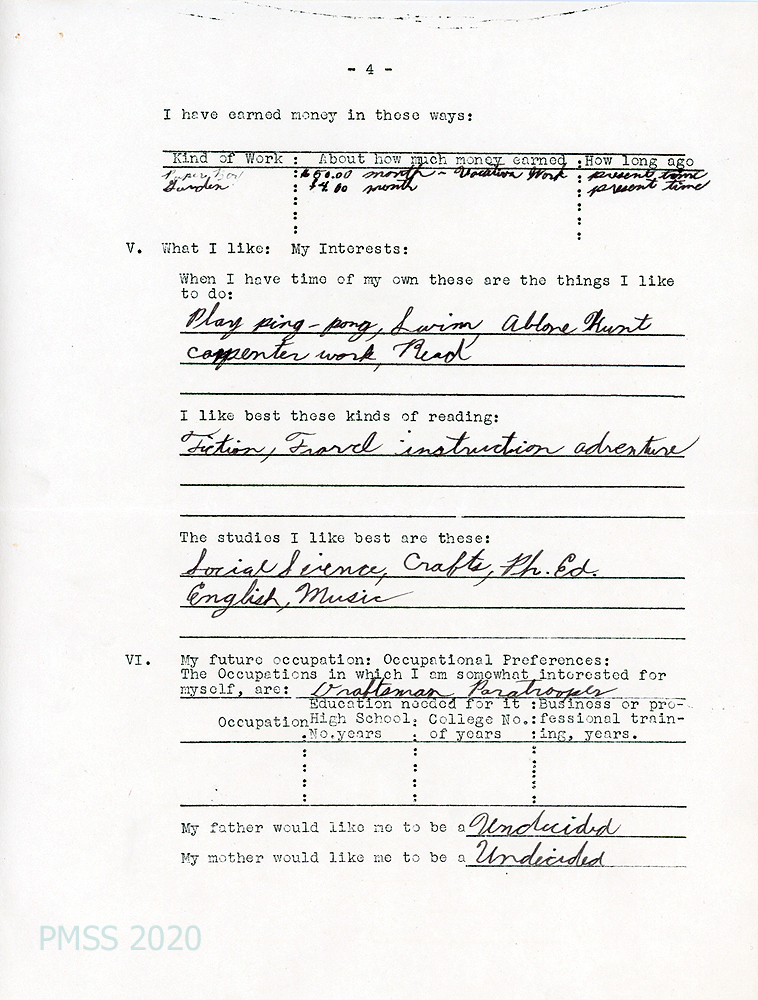 - 4 -
I have earned money in these ways:
Kind of Work : About how much money earned : How long ago
Paper Boy $60.00 month - Vacation Work present time
Garden $4.00 month present time
V. What I like: My Interests:
When I have time of my own these are the things I like
to do:
Play ping-pong, Swim, Hunt
carpenter work, Read
I like best these kinds of reading:
Fiction, Travel instruction adventure
The studies I like best are these:
Social Science, Crafts, Ph. Ed.
English, Music
VI. My future occupation: Occupational Preferences:
The Occupations in which I am somewhat interested for
myself, are: Draftsman Paratrooper
Education needed for it : Business or pro-
Occupation High School: College No.: fessional train-
No.years : of years : ing, years.
My father would like me to be a Undecided
My mother would like me to be a Undecided
PMSS 2020